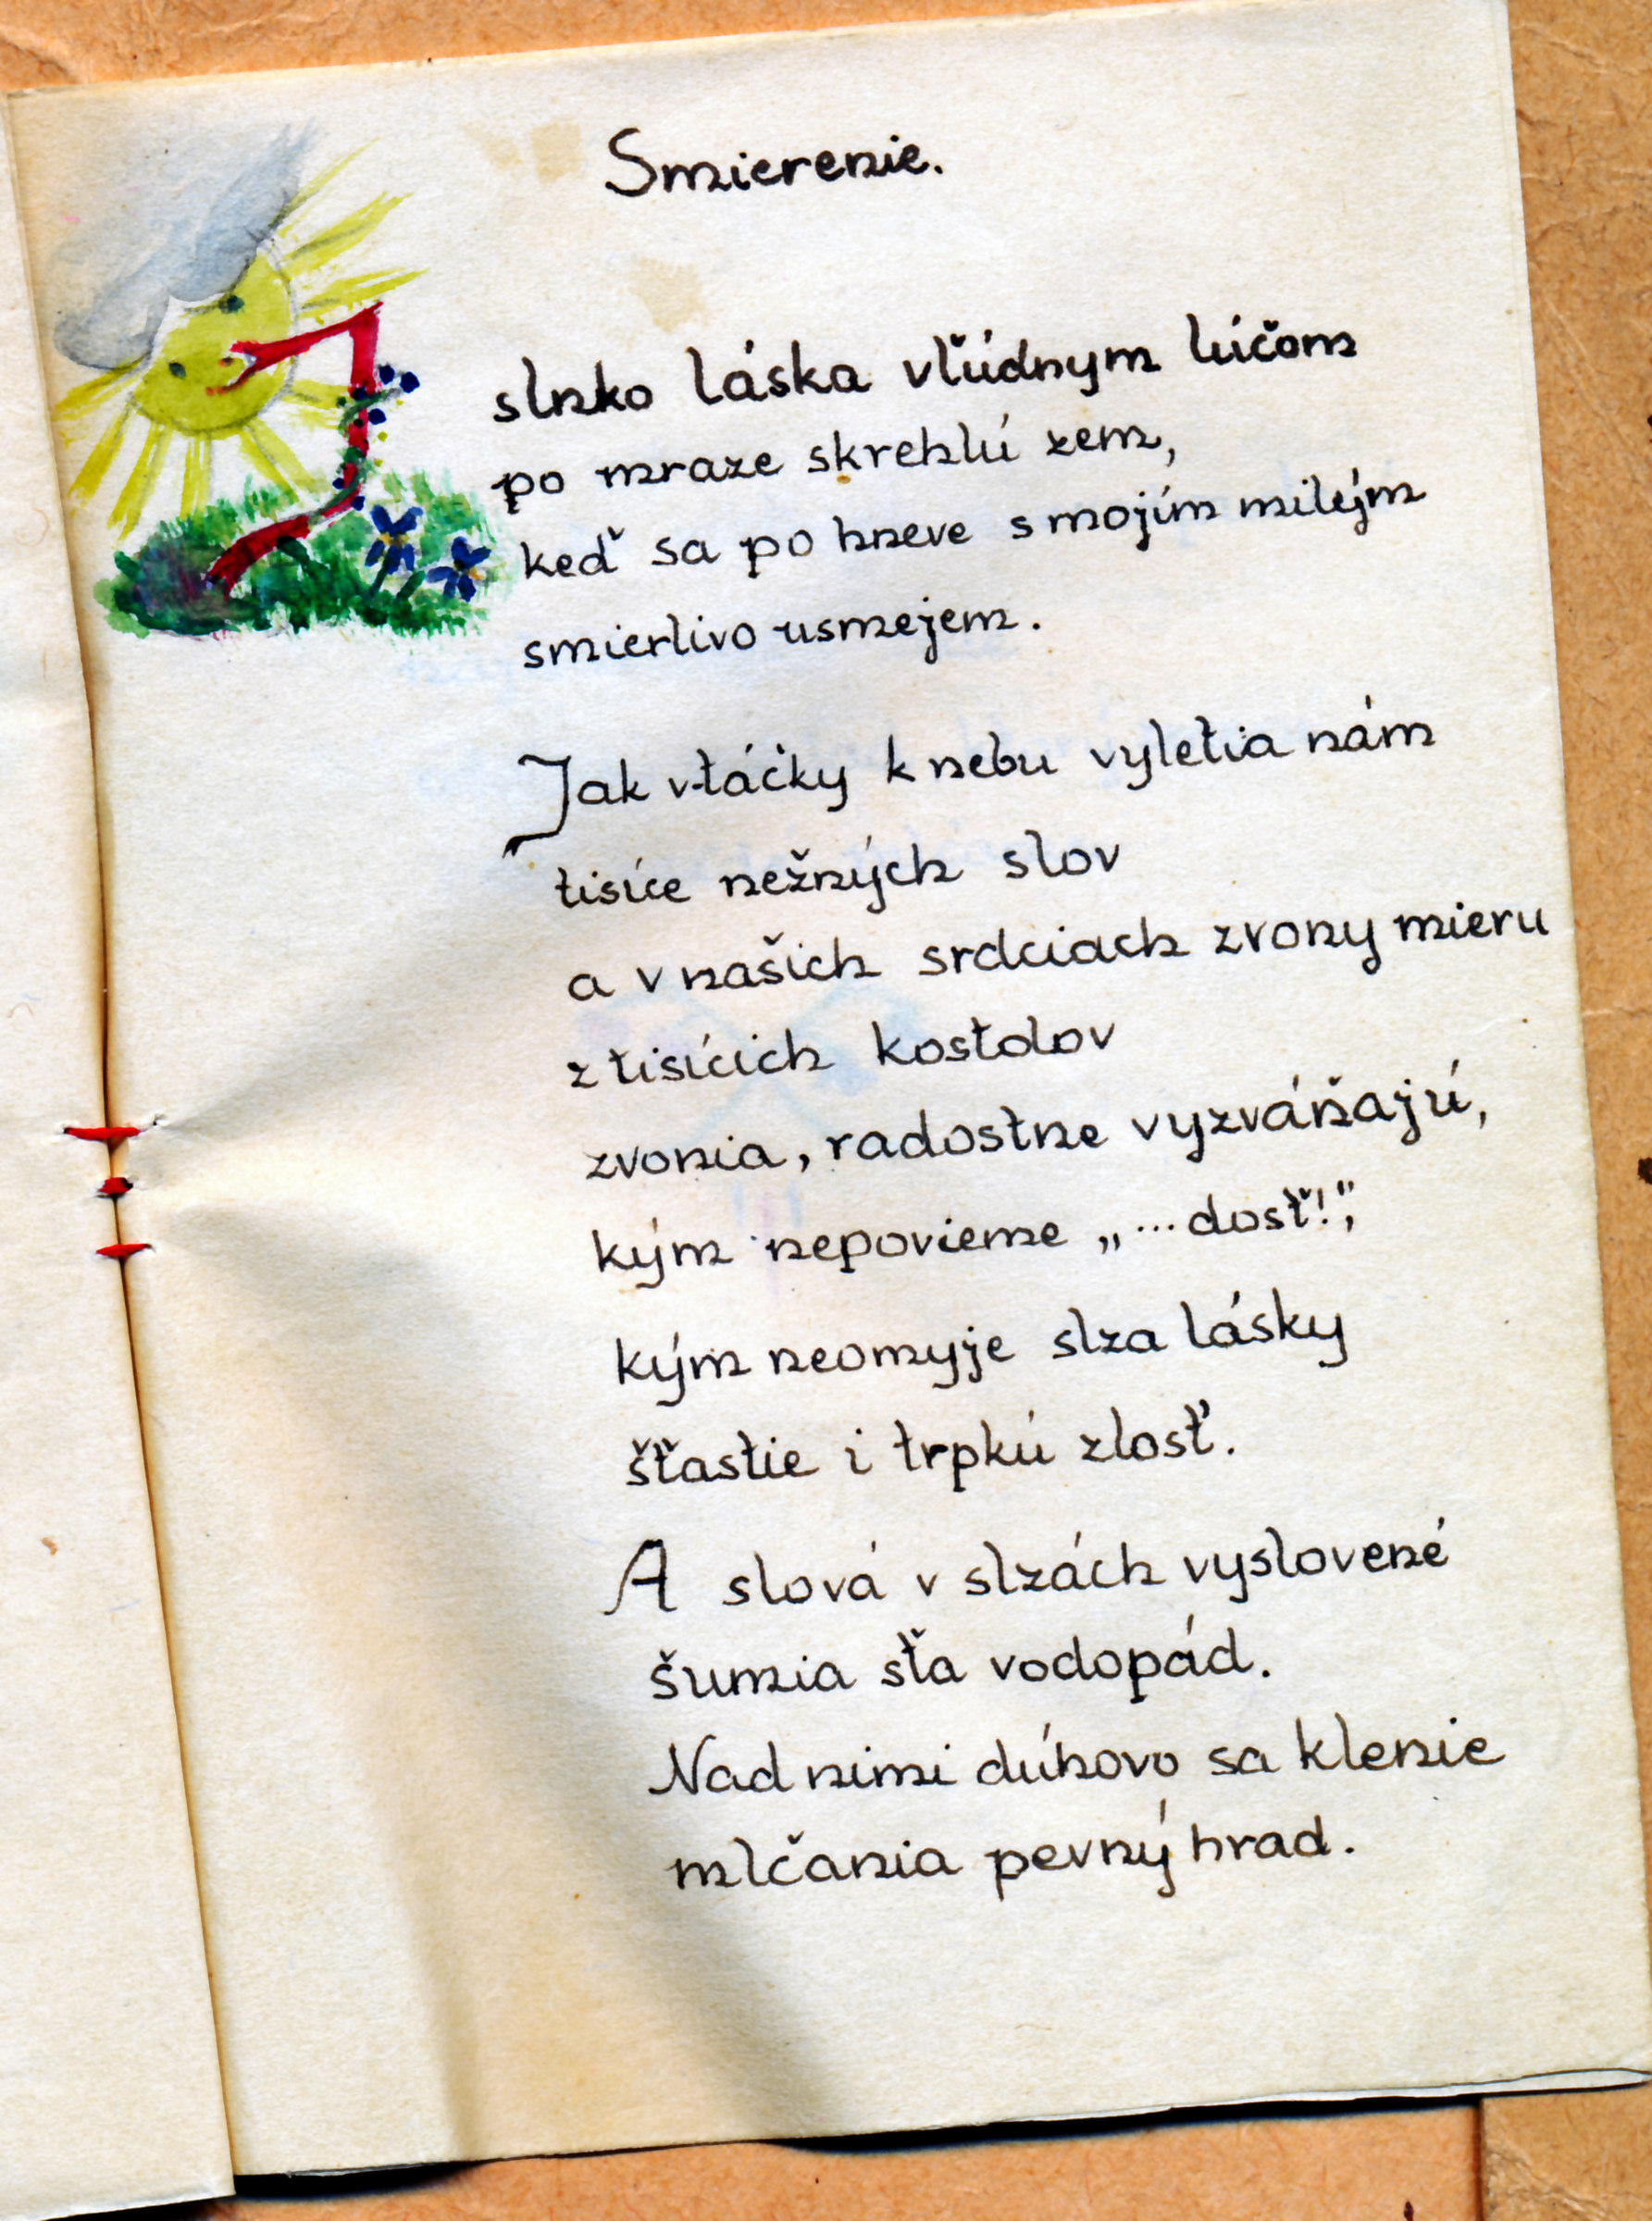 Smierenie.
slnko láska vľúdnym lúčom
po mraze skrehlú zem,
keď sa po hneve s mojím milým
smierlivo usmejem.
Jak vtáčky k nebu vyletia nám
tisíce nežných slov
a v našich srdciach zvony mieru
z tisícich kostolov
zvonia, radostne vyzváňajú,
kým nepovieme „...dosť!",
kým neomyje slza lásky
šťastie i trpkú zlosť.
A slová v slzách vyslovené
šumia sťa vodopád.
Nad nimi dúhovo sa klenie
mlčania pevný hrad.